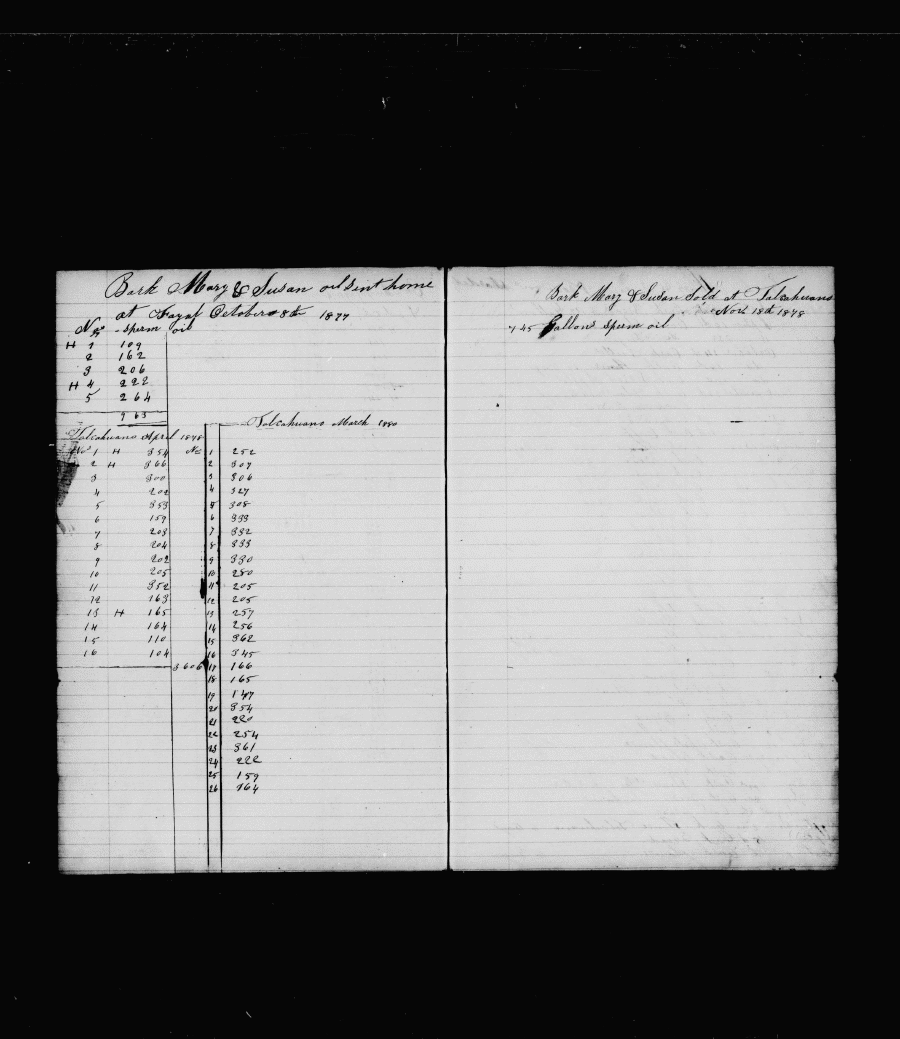 Bark Mary & Susan oil sent home
at Fayal October 8th 1877
No sperm oil
H 1 109
2 162
3 206
H 4 222
5 264
963
Talcahuano April 1878
No 1 H 354
2 H 366
3 300
4 202
5 353
6 159
7 203
8 204
9 202
10 205
11 352
12 163
13 H 165
14 164
15 110
16 104
3606
Talcahuano March 1880
No 1 252
2 307
3 306
4 327
5 308
6 333
7 332
8 333
9 330
10 280
11 205
12 205
13 257
14 256
15 362
16 345
17 166
18 165
19 147
20 354
21 220
22 254
23 361
24 222
25 159
26 164
Bark Mary & Susan Sold at Talcahuano
Nov 18th 1878
745 Gallons sperm oil